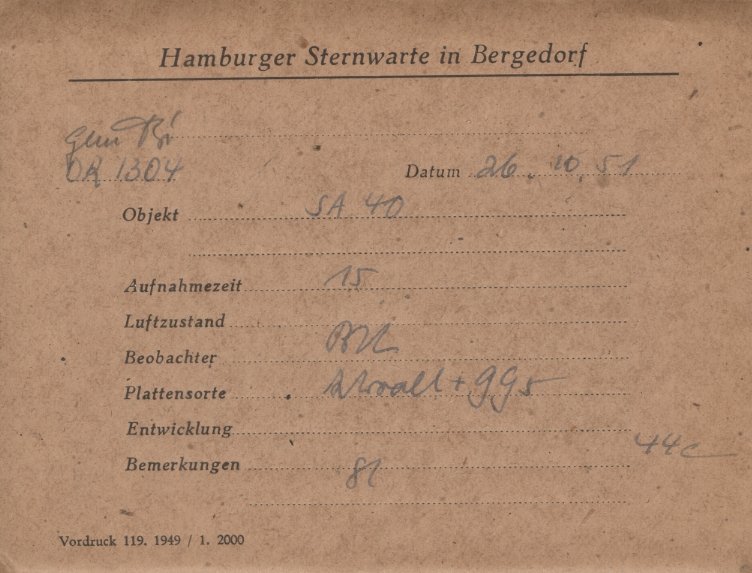 Hamburger Sternwarte in Bergedorf
OR 1304
Datum 26. 10 51
Objekt SA 40
Aufnahmezeit 15
Luftzustand
Beobachter
Plattensorte + GG5
Entwicklung
44c
Bemerkungen
Vordruck 119. 1949 / 1. 2000